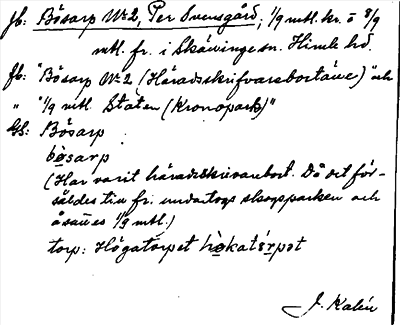 Jb: Bösarp No 2, Per Svensgård; 1/9 mtl. kr. o 8/9
mtl. fr. i Skävinge sn. Himle hd.
Jb: "Bösarp No 2 (Häradsskrifvarebostälet)" och
" "1/9 mtl. Staten (Kronopark)"
Gs: Bösarp
bòsarp
(Har varit häradsskrivarebost. Då det för-
såldes till fr. undantogs skogsparken och
1/9 mtl.)
torp: Högatorpet hòkatórpət
J. Kalén